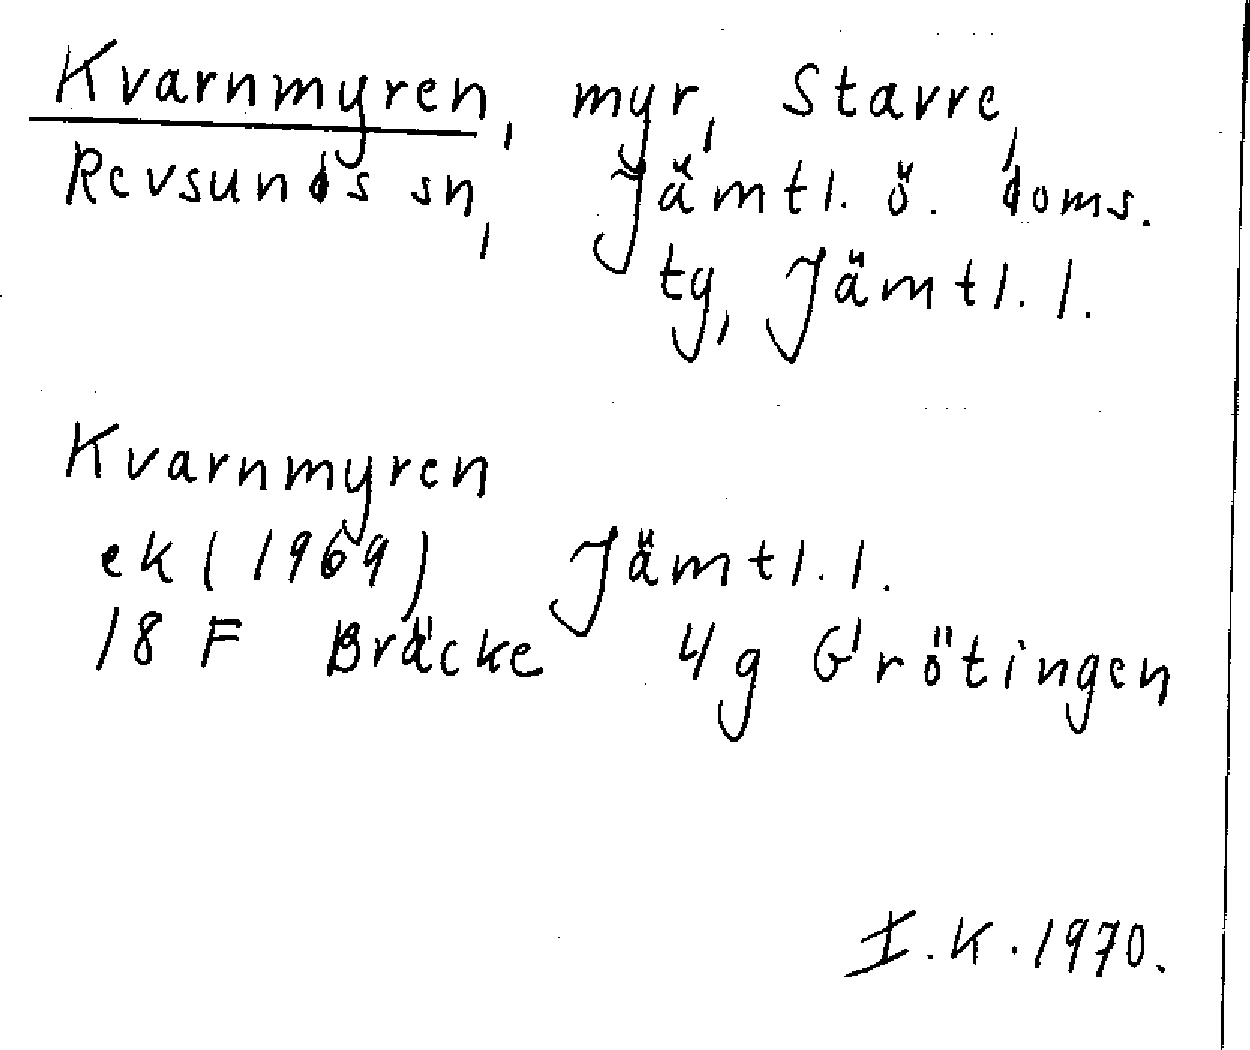 Kvarnmyren, myr, Stavre,
Revsunds sn, Jämtl. ö. doms.
ty, Jämtl. l.
Kvarnmyren
ek (1969) Jämtl. l.
18 F Bräcke 4g Grötingen
I.K. 1970.